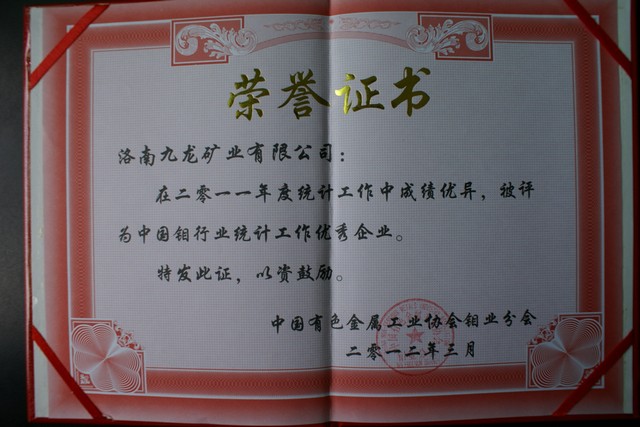 荣誉证书
洛南九龙矿业有限公司：
在二零一一年度统计工作中成绩优异，被评
为中国钼行业统计工作优秀企业。
特发此证，以资鼓励。
中国有色金属工业协会钼业分会
二零一二年三月